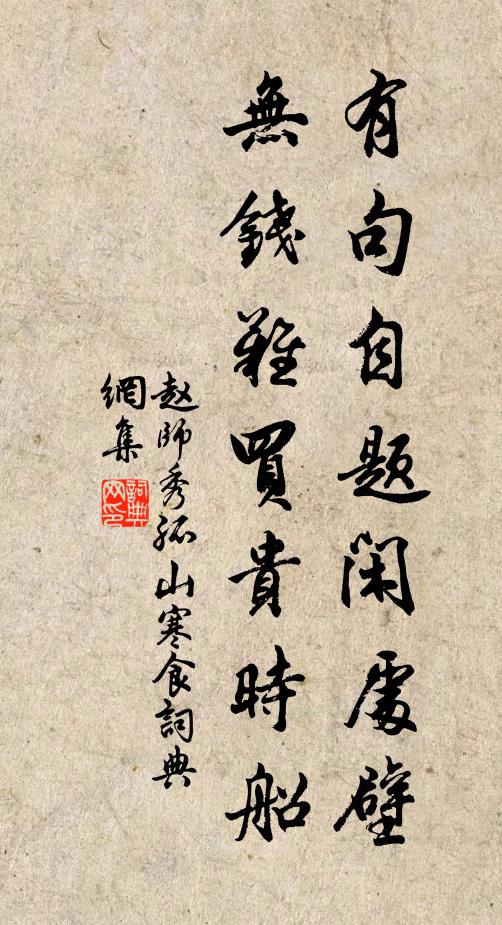 有句自題閑處壁
無錢難買貴時船
赵師秀孤山寒食詞典
網集
詞典網印